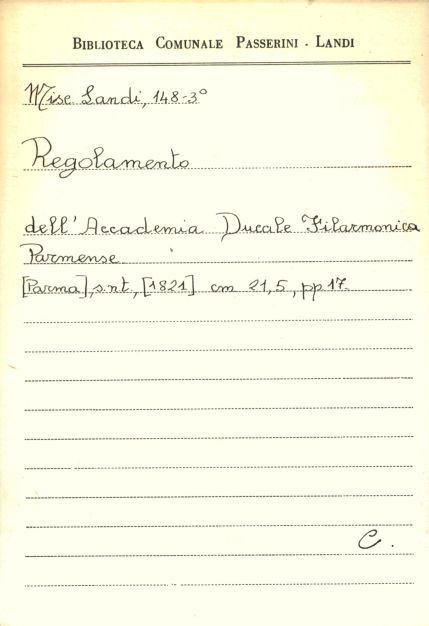 BIBLIOTECA COMUNALE PASSERINI - LANDI
Misc Landi, 148-3°
Regolamento
dell'Accademia Ducale Filarmonica
Parmense
[Parma], s.n.t., [1821] cm 21,5, pp 17.
C.